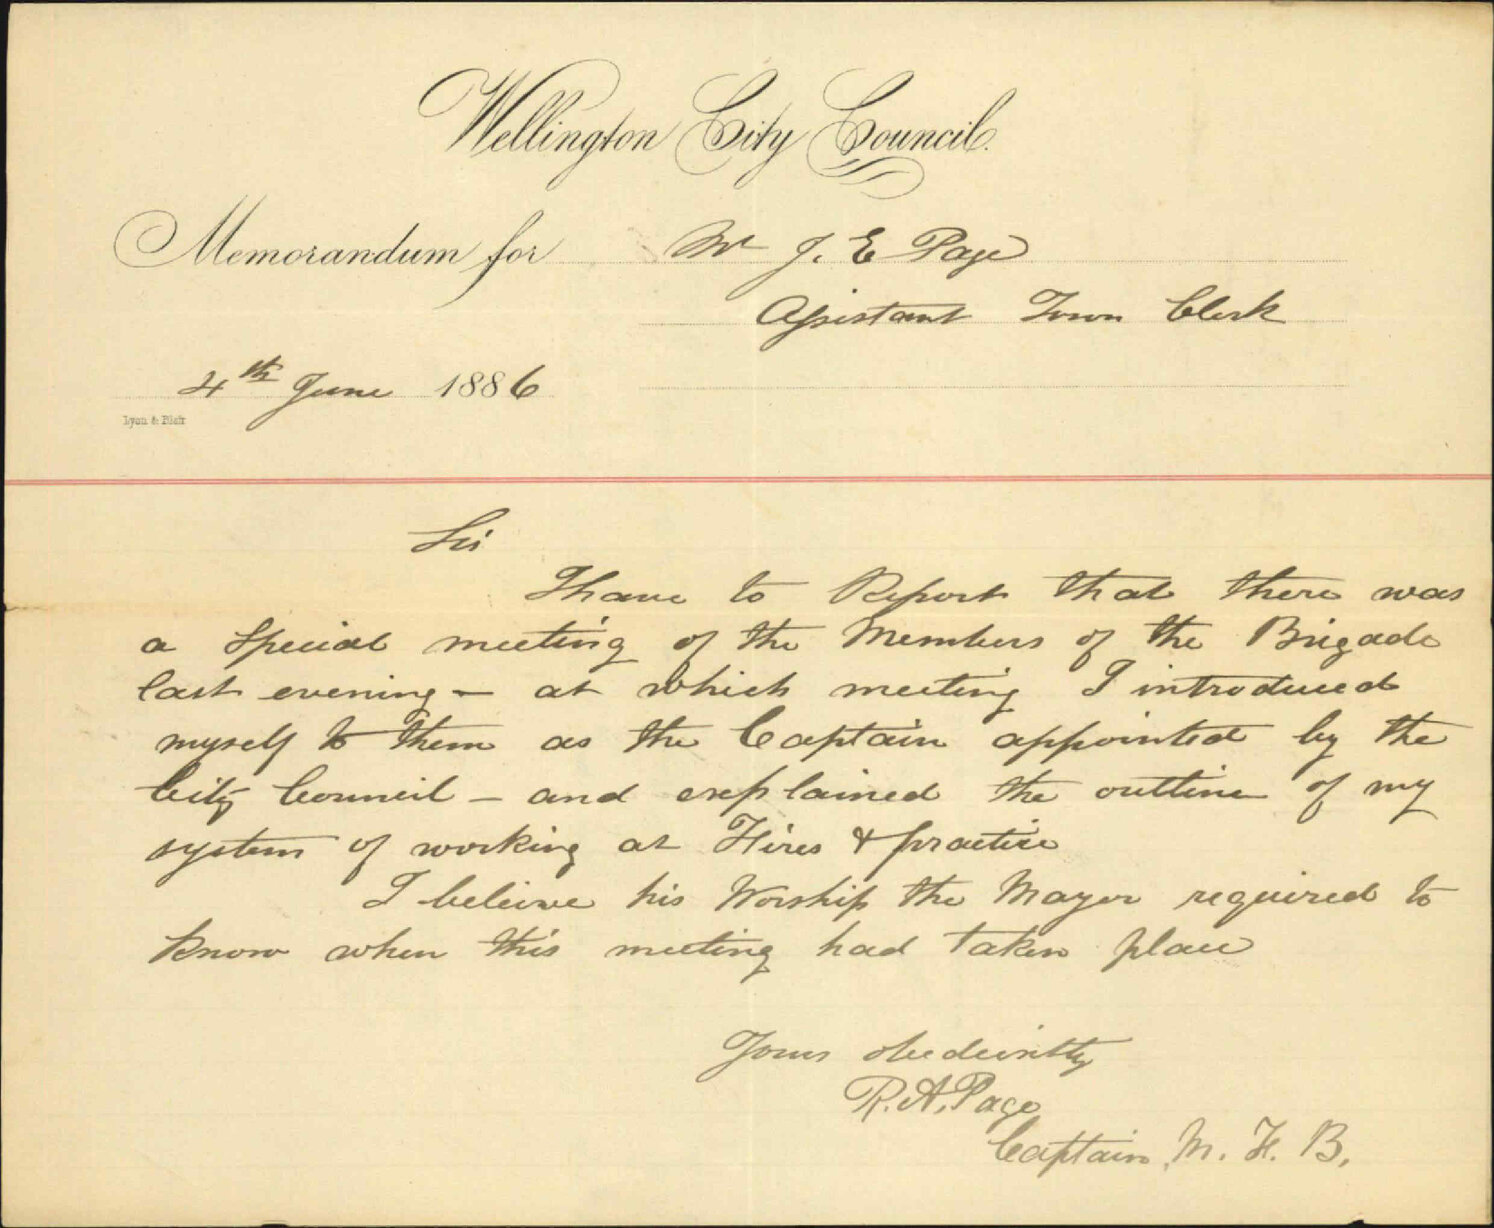 Wellington City Council.
Memorandum for Mr J. E Page
Assistant Town Clerk
4th June 1886
Lyon & Blair
Sir
I have to Report that there was
a Special meeting of the Members of the Brigade
last evening – at which meeting I introduced
myself to them as the Captain appointed by the
City Council – and explained the outline of my
system of working at Fires & practice
I beleive his Worship the Mayor required to
know when this meeting had taken place
Yours obediently
R. A. Page
Captain, M. F. B.